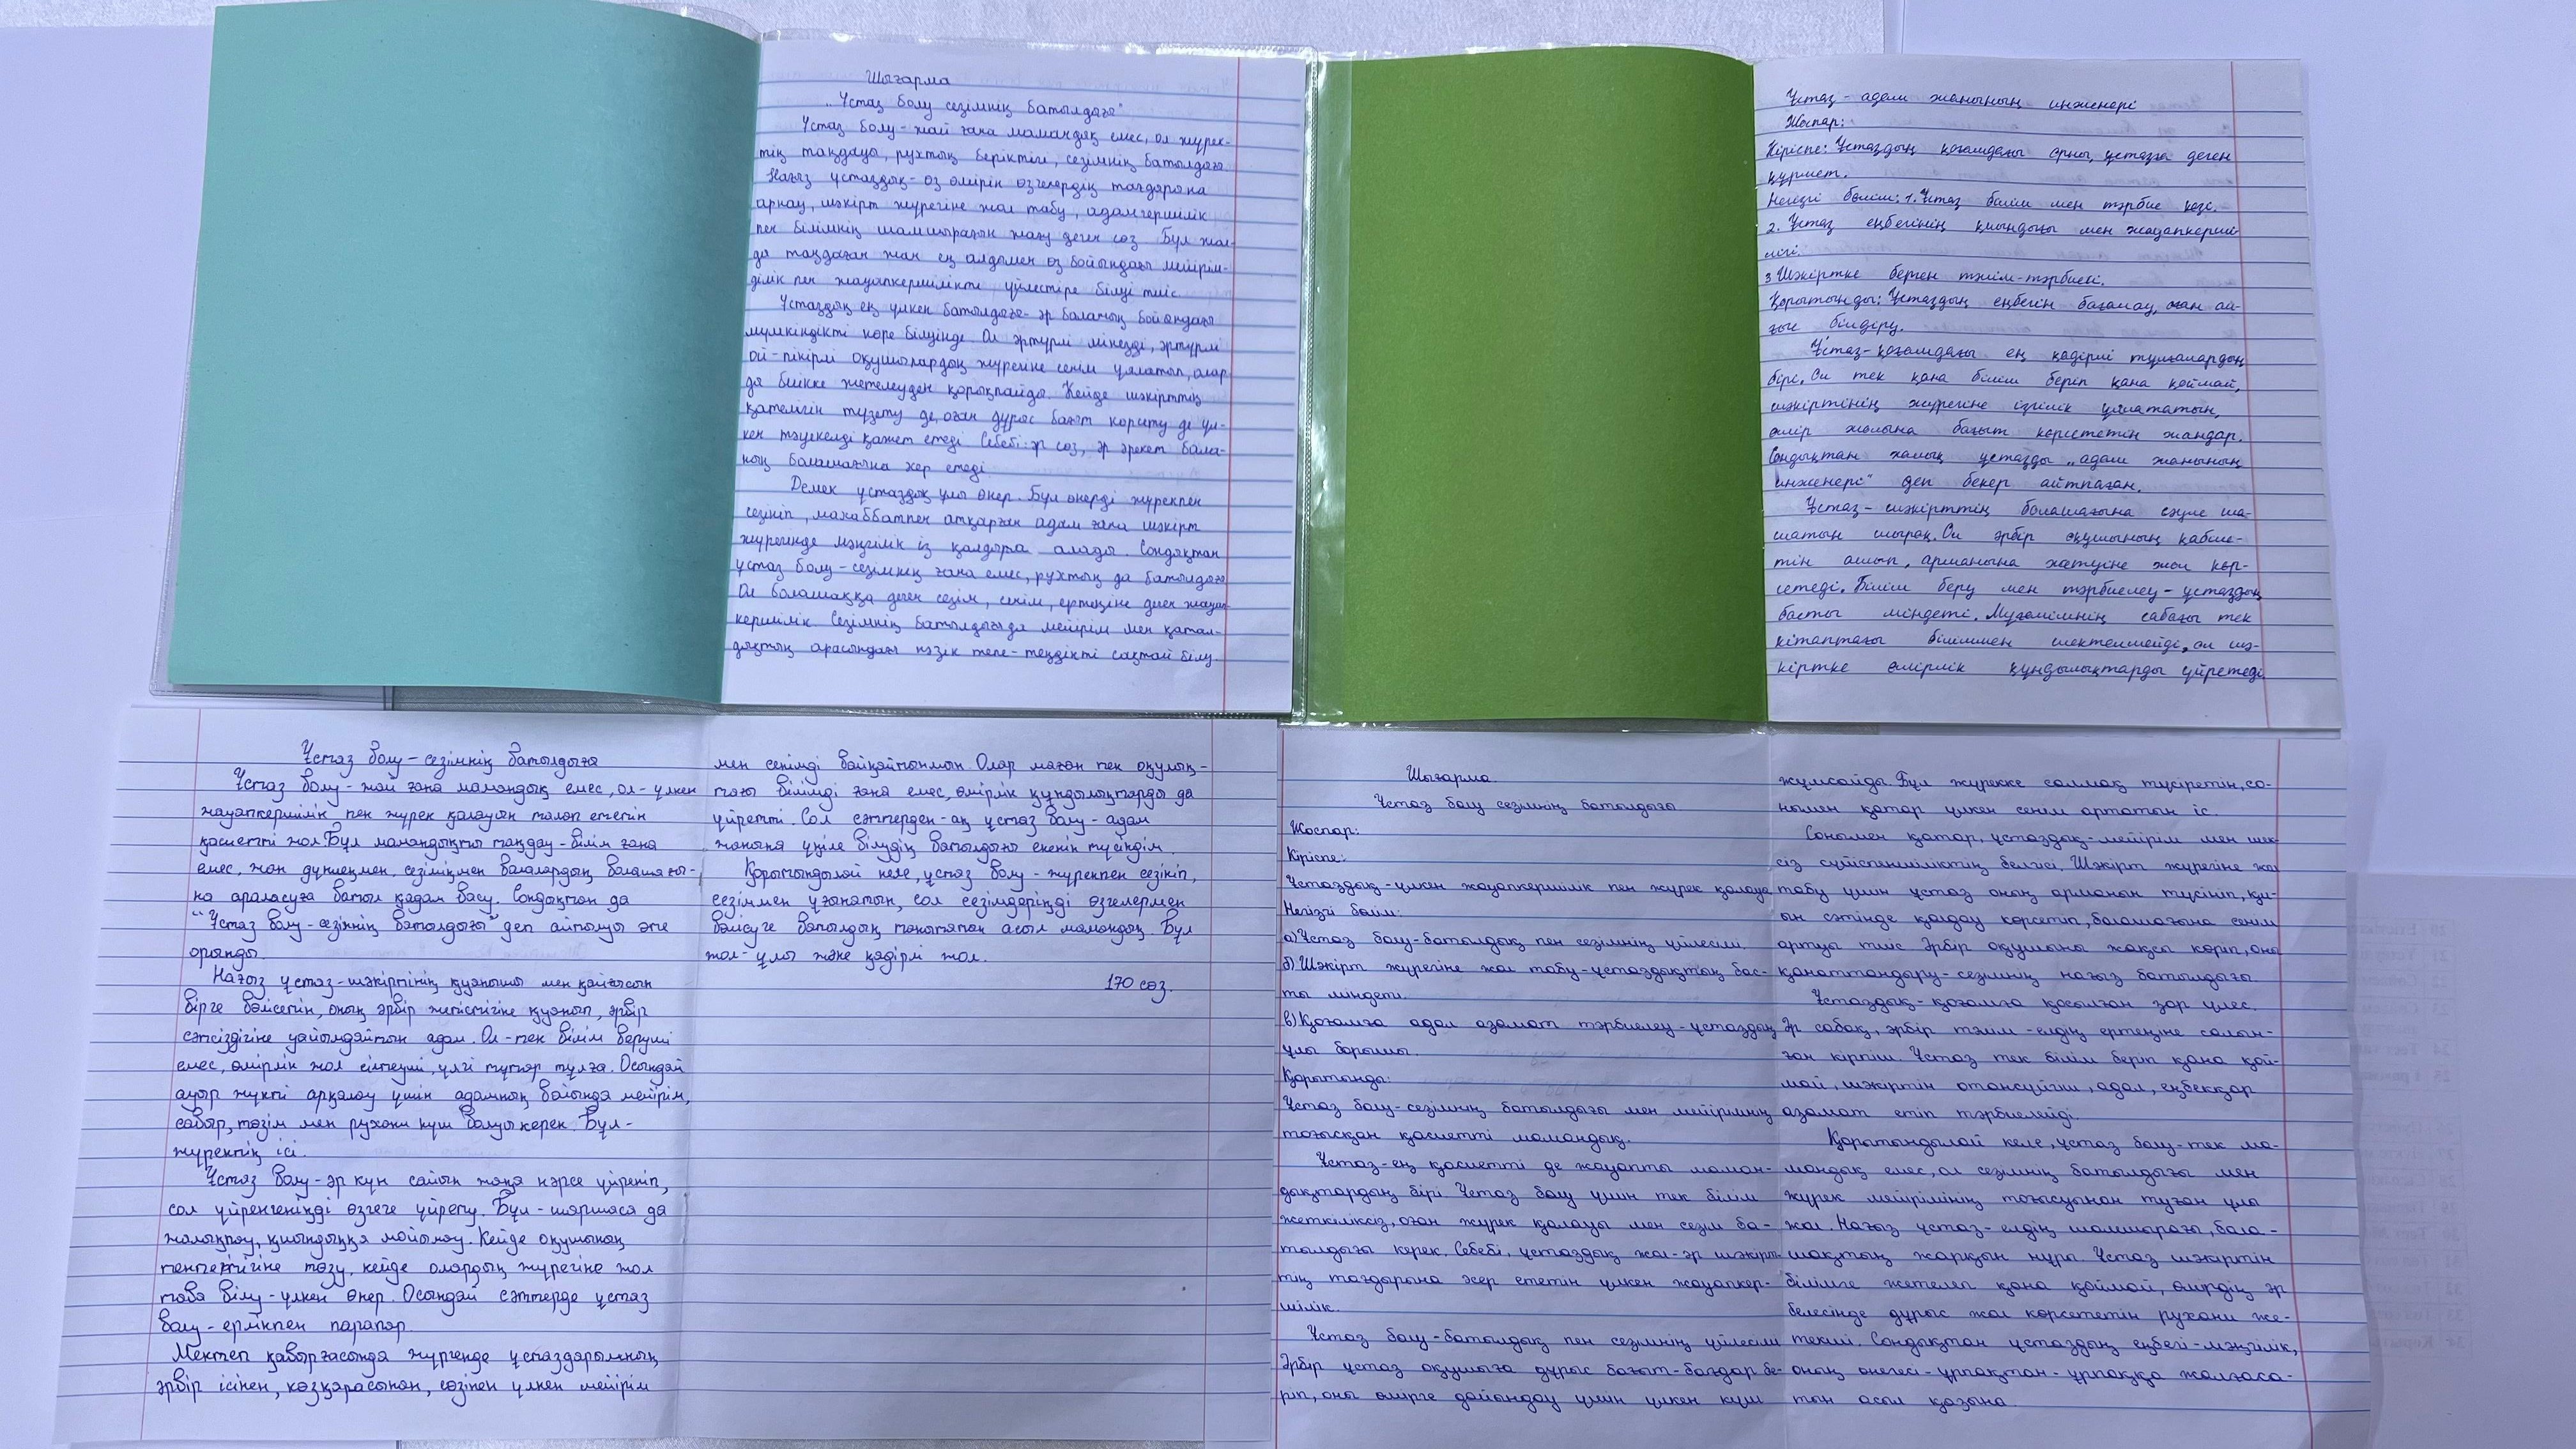 Шығарма
„Ұстаз болу сезімнің батылдығы"
Ұстаз болу - жай ғана мамандық емес, ол жүрек-
тің таңдауы, рухтың беріктігі, сезімнің батылдығы.
Нағыз ұстаздық - өз өмірін өзгелердің тағдырына
арнау, шәкірт жүрегіне жол табу, адамгершілік
пен білімнің шамшырағын жағу деген сөз. Бұл жол-
ды таңдаған жан ең алдымен өз бойындағы мейірім-
ділік пен жауапкершілікті үйлестіре білуі тиіс.
Ұстаздың ең үлкен батылдығы - әр баланың бойындағы
мүмкіндікті көре білуінде. Ол әртүрлі мінезді, әртүрлі
ой-пікірлі оқушылардың жүрегіне сенім ұялатып, олар-
ды биікке жетелеуден қорықпайды. Кейде шәкірттің
қателігін түзету де, оған дұрыс бағыт көрсету де үл-
кен тәуекелді қажет етеді. Себебі: әр сөз, әр әрекет бала-
ның болашағына әсер етеді.
Демек ұстаздық ұлы өнер. Бұл өнерді жүрекпен
сезініп, махаббатпен атқарған адам ғана шәкірт
жүрегінде мәңгілік із қалдыра алады. Сондықтан
ұстаз болу - сезімнің ғана емес, рухтың да батылдығы
Ол болашаққа деген сезім, сенім, ертеңіне деген жауап-
кершілік. Сезімнің батылдығы да мейірім мен қатал-
дықтың арасындағы нәзік тепе-теңдікті сақтай білу.
Ұстаз - адам жанының инженері
Жоспар:
Кіріспе: Ұстаздың қоғамдағы орны, ұстазға деген
құрмет.
Негізгі бөлім: 1. Ұстаз білім мен тәрбие көзі.
2. Ұстаз еңбегінің қиындығы мен жауапкерші
лігі.
3 Шәкіртке берген тәлім-тәрбиесі.
Қорытынды: Ұстаздың еңбегін бағалау, оған ал-
ғыс білдіру.
Ұстаз - қоғамдағы ең қадірлі тұлғалардың
бірі. Ол тек қана білім беріп қана қоймай,
шәкіртінің жүрегіне ізгілік ұялататын,
өмір жолына бағыт көрсететін жандар.
Сондықтан халық ұстазды „адам жанының
инженері" деп бекер айтпаған.
Ұстаз - шәкірттің болашағына сәуле ша-
шатын шырақ. Ол әрбір оқушының қабіле-
тін ашып, арманына жетуіне жол көр-
сетеді. Білім беру мен тәрбиелеу - ұстаздың
басты міндеті. Мұғалімнің сабағы тек
кітаптағы біліммен шектелмейді, ол шә-
кіртке өмірлік құндылықтарды үйретеді.
Ұстаз болу - сезімнің батылдығы
Ұстаз болу - жай ғана мамандық емес, ол - үлкен
жауапкершілік пен жүрек қалауын талап ететін
қасиетті жол. Бұл мамандықты таңдау - білім ғана
емес, жан дүниеңмен, сезіміңмен балалардың болашағы-
на араласуға батыл қадам басу. Сондықтан да
"Ұстаз болу - сезімнің батылдығы" деп айтылуы өте
орынды.
Нағыз ұстаз - шәкіртінің қуанышы мен қайғысын
бірге бөлісетін, оның әрбір жетістігіне қуанып, әрбір
сәтсіздігіне уайымдайтын адам. Ол - тек білім беруші
емес, өмірлік жол сілтеуші, үлгі тұтар тұлға. Осындай
ауыр жүкті арқалау үшін адамның бойында мейірім,
сабыр, төзім мен рухани күш болуы керек. Бұл -
жүректің ісі.
Ұстаз болу - әр күн сайын жаңа нәрсе үйреніп,
сол үйренгеніңді өзгеге үйрету. Бұл - шаршаса да
жалықпау, қиындыққа мойымау. Кейде оқушының
тентектігіне төзу, кейде олардың жүрегіне жол
таба білу - үлкен өнер. Осындай сәттерде ұстаз
болу - ерлікпен парапар.
Мектеп қабырғасында жүргенде ұстаздарымның
әрбір ісінен, көзқарасынан, сөзінен үлкен мейірім
мен сенімді байқайтынмын. Олар маған тек оқулық-
тағы білімді ғана емес, өмірлік құндылықтарды да
үйретті. Сол сәттерден-ақ ұстаз болу - адам
жанына үңіле білудің батылдығы екенін түсіндім.
Қорытындылай келе, ұстаз болу - жүрекпен сезініп,
сезіммен ұғынатын, сол сезімдеріңді өзгелермен
бөлісуге батылдық танытатын асыл мамандық. Бұл
жол - ұлы және қадірлі жол.
170 сөз.
Шығарма.
Ұстаз болу сезімнің батылдығы.
Жоспар:
Кіріспе:
Ұстаздық - үлкен жауапкершілік пен жүрек қалауы
Негізгі бөлім:
а) Ұстаз болу - батылдық пен сезімнің үйлесімі.
б) Шәкірт жүрегіне жол табу - ұстаздықтың бас-
ты міндеті.
в) Қоғамға адал азамат тәрбиелеу - ұстаздың
ұлы борышы.
Қорытынды:
Ұстаз болу - сезімнің батылдығы мен мейірімнің
тоғысқан қасиетті мамандық.
Ұстаз - ең қасиетті де жауапты маман-
дықтардың бірі. Ұстаз болу үшін тек білім
жеткіліксіз, оған жүрек қалауы мен сезім ба-
тылдығы керек. Себебі, ұстаздық жол - әр шәкірт-
тің тағдырына әсер ететін үлкен жауапкер-
шілік.
Ұстаз болу - батылдық пен сезімнің үйлесімі
Әрбір ұстаз оқушыға дұрыс бағыт-бағдар бе-
ріп, оны өмірге дайындау үшін үлкен күш
жұмсайды. Бұл жүрекке салмақ түсіретін, со-
нымен қатар үлкен сенім артатын іс.
Сонымен қатар, ұстаздық - мейірім мен шек-
сіз сүйіспеншіліктің белгісі. Шәкірт жүрегіне жол
табу үшін ұстаз оның арманын түсініп, қи-
ын сәтінде қолдау көрсетіп, болашағына сенім
артуы тиіс. Әрбір оқушыны жақсы көріп, оны
қанаттандыру - сезімнің нағыз батылдығы.
Ұстаздық - қоғамға қосылған зор үлес.
Әр сабақ, әрбір тәлім - елдің ертеңіне салын-
ған кірпіш. Ұстаз тек білім беріп қана қой-
май, шәкіртін отансүйгіш, адал, еңбекқор
азамат етіп тәрбиелейді.
Қорытындылай келе, ұстаз болу - тек ма-
мандық емес, ол сезімнің батылдығы мен
жүрек мейірімінің тоғысуынан туған ұлы
жол. Нағыз ұстаз - елдің шамшырағы, бола-
шақтың жарқын нұры. Ұстаз шәкіртін
білімге жетелеп қана қоймай, өмірдің әр
белесінде дұрыс жол көрсететін рухани же-
текші. Сондықтан ұстаздың еңбегі - мәңгілік,
оның өнегесі - ұрпақтан-ұрпаққа жалғаса-
тын асыл қазына.